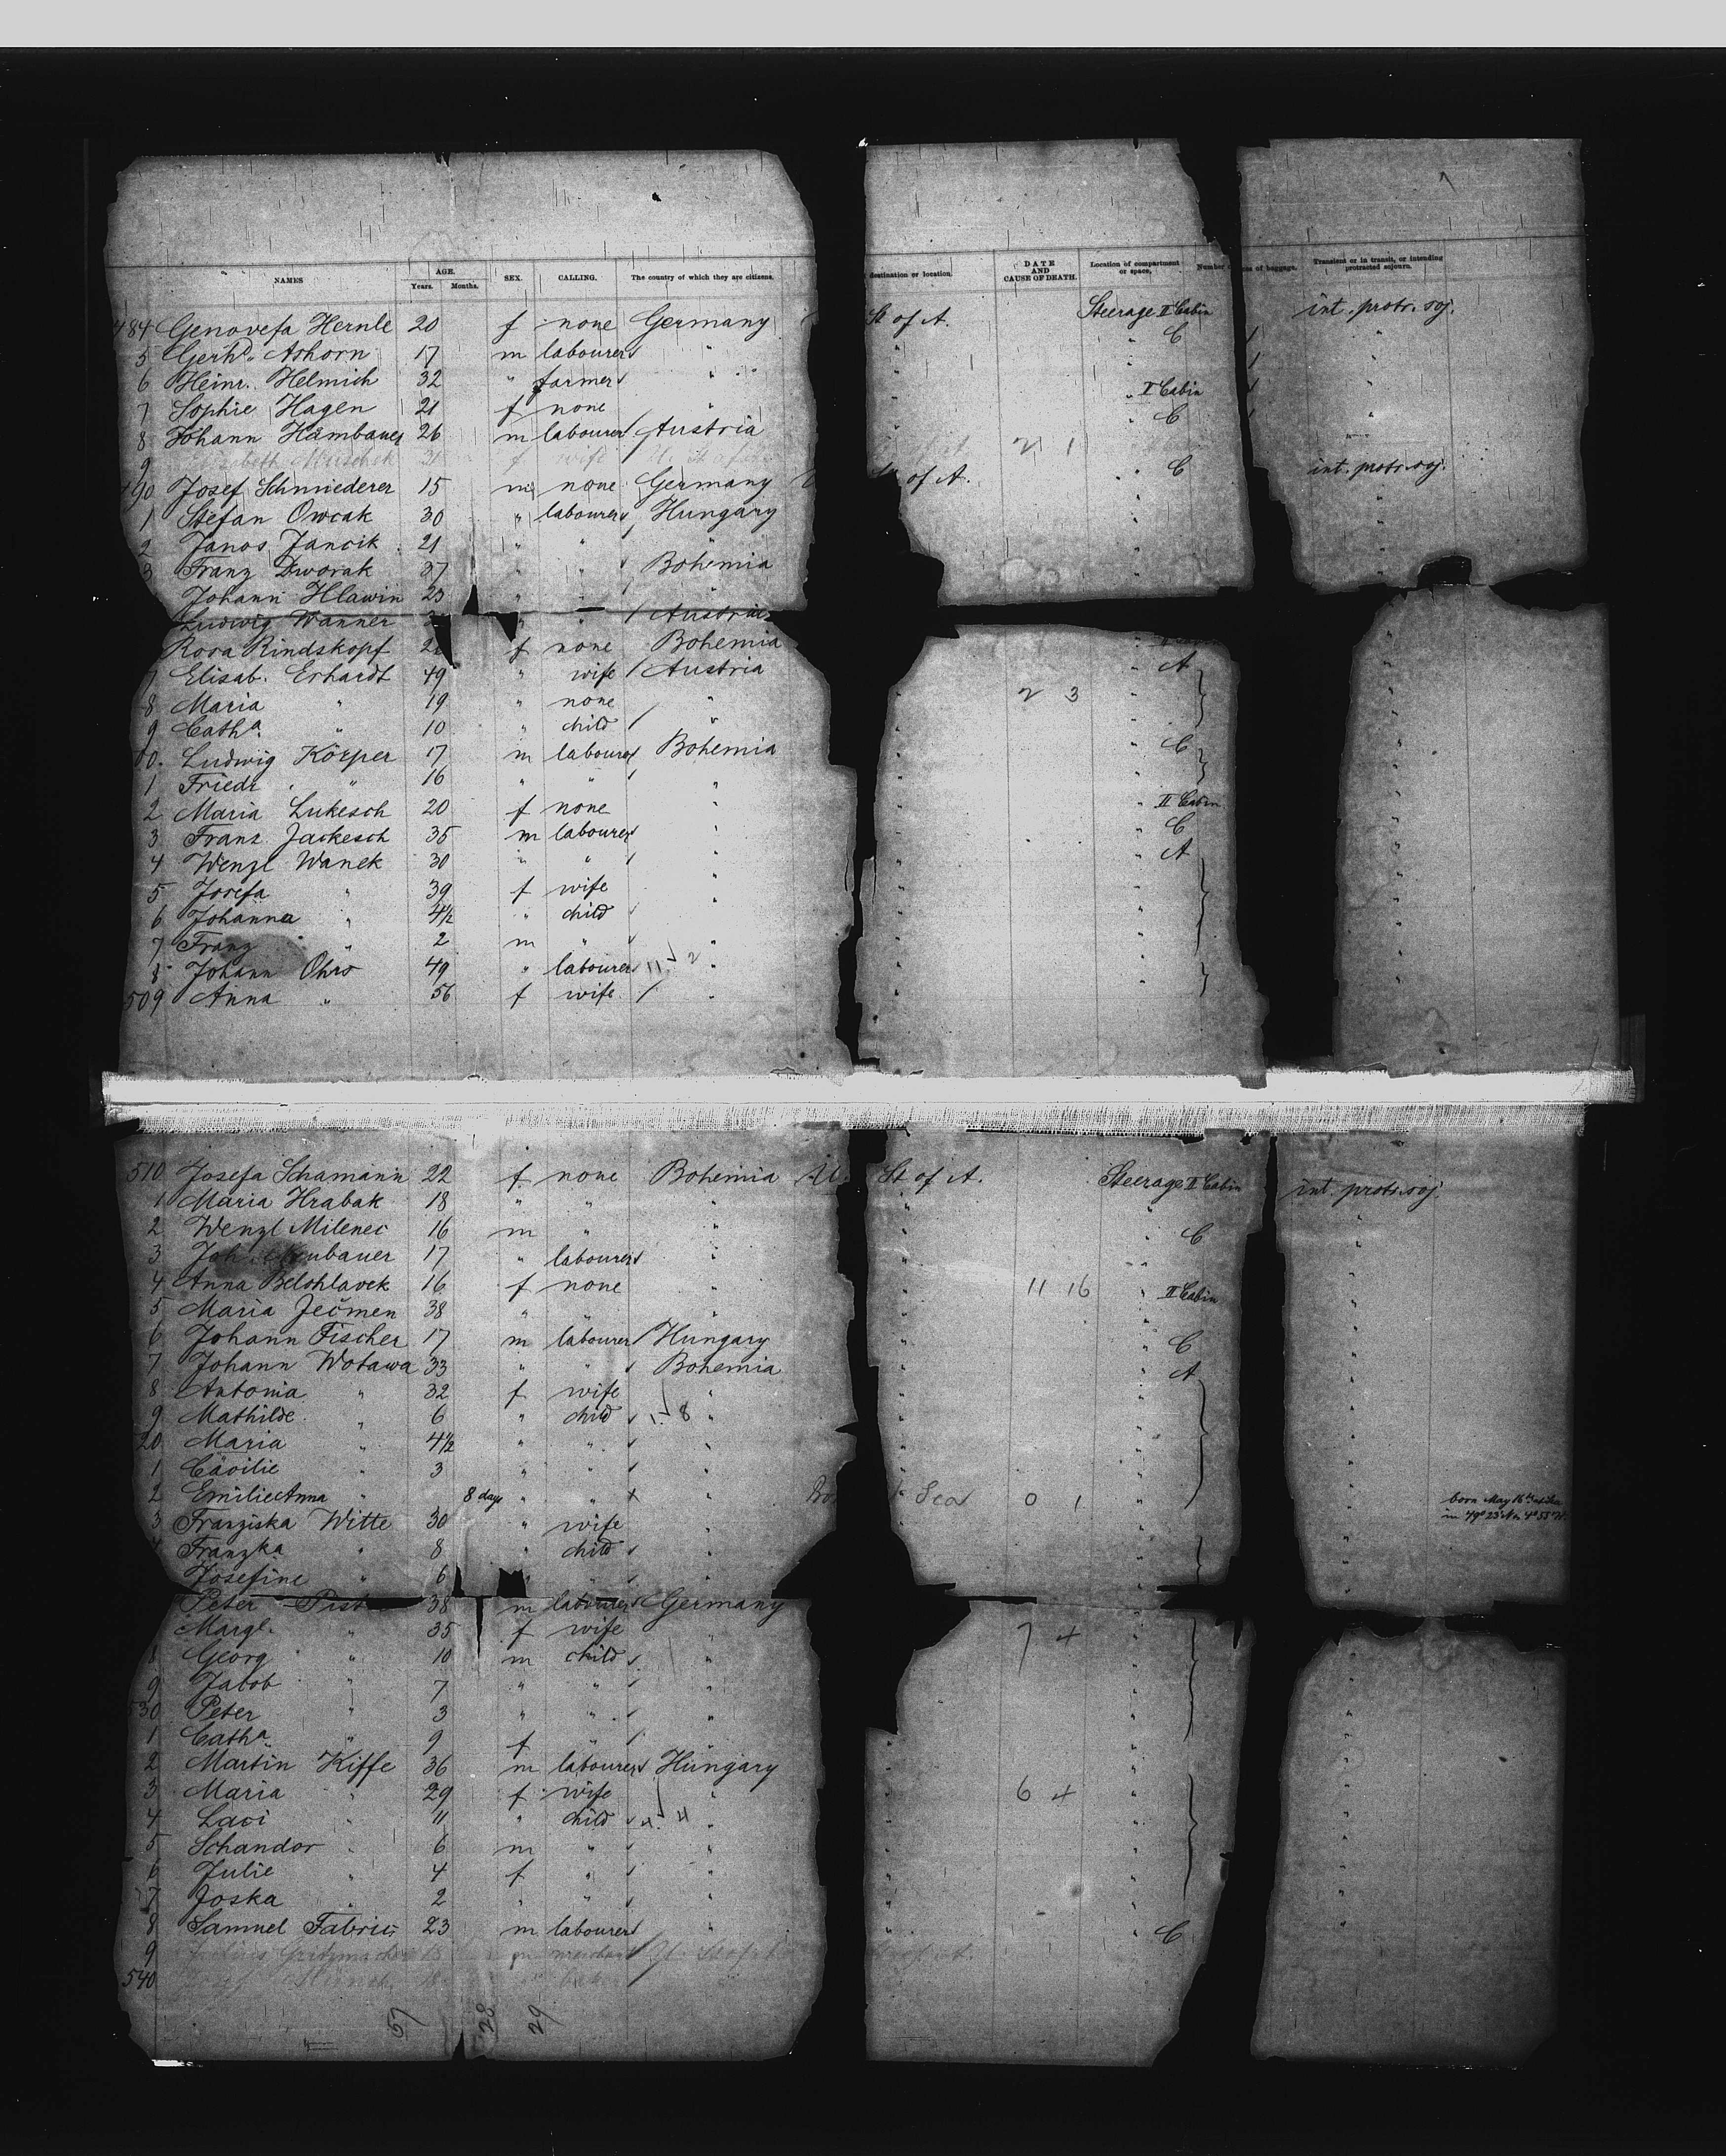 NAMES AGE. Years. Months. SEX. CALLING. The country of which they are citizens. destination or location. DATE AND CAUSE OF DEATH. Location of compartment or space. Number of baggage. Transient or in transit, or intending protracted sojourn.
484 Genovefa Hernle 20 f none Germany St of A. Steerage II Cabin int. protr. soj.
5 Gerhd. Ashorn 17 m labourer " " C 1 "
6 Heinr. Helmich 32 " farmer " " 1
7 Sophie Hagen 21 f none " " " II Cabin 1
8 Johann Hambauer 26 m labourer Austria " C 1 "
9 Elisabeth Muschek 31 f wife 2 1
490 Josef Schmiederer 15 m none Germany St of A. " C int. protr. soj.
1 Stefan Owcak 30 " labourer Hungary " "
2 Janos Jancik 21 " " " " "
3 Franz Dworak 37 " " Bohemia " "
Johann Hlawin 23 " " " " "
Ludwig Wanner " " Austria
Rosa Rindskopf f none Bohemia "
7 Elisab. Erhardt 49 " wife Austria " A "
8 Maria " 19 " none " " 2 3 " "
9 Catha. " 10 " child " " " "
00. Ludwig Körper 17 m labourer Bohemia " " C "
1 Friedr. " 16 " " " " " "
2 Maria Lukesch 20 f none " " " II Cabin "
3 Franz Jackesch 35 m labourer " " C "
4 Wenzl Wanek 30 " " " " " A "
5 Josefa " 39 f wife " " " "
6 Johanna " 4½ " child " " " "
7 Franz " 2 m " " " " "
8 Johann Ohrs 49 " labourer 11 2 " " " "
509 Anna " 56 f wife " " " "
510 Josefa Schamann 22 f none Bohemia U. St of A. Steerage II Cabin int. protr. soj.
1 Maria Hrabak 18 " " " " " "
2 Wenzl Milenec 16 m " " " " C "
3 Joh. Neubauer 17 " labourer " " " "
4 Anna Belohlavek 16 f none " " 11 16 " II Cabin "
5 Maria Ječmen 38 " " " " " "
6 Johann Fischer 17 m labourer Hungary " " C "
7 Johann Wotawa 33 " " Bohemia " " A "
8 Antonia " 32 f wife " " " "
9 Mathilde " 6 " child 1. 8 " " " "
20 Maria " 4½ " " " " " "
1 Cäcilie " 3 " " " " " "
2 Emilie Anna " 8 days " " x " Sea 0 1 " born May 16th in 49° 23' N. 4° 55' W.
3 Franziska Witte 30 " wife " " " "
4 Franzka " 8 " child " " " "
Josefine " 6 " " " " " "
Peter 38 m labourer Germany "
Margl. " 35 f wife " 7 4 " "
8 Georg " 10 m child " " "
9 Jacob " 7 " " " " "
530 Peter " 3 " " " " "
1 Catha. " 9 f " " " " "
2 Martin Kiffe 36 m labourer Hungary " " "
3 Maria " 29 f wife " " 6 4 " "
4 Laci " 11 " child 4. 4 " " " "
5 Schandor " 6 m " " " " "
6 Julie " 4 f " " " " "
7 Joska " 2 " " " " " "
8 Samuel Fabric 23 m labourer " " " C "
9 m merchant
540
57 28 29